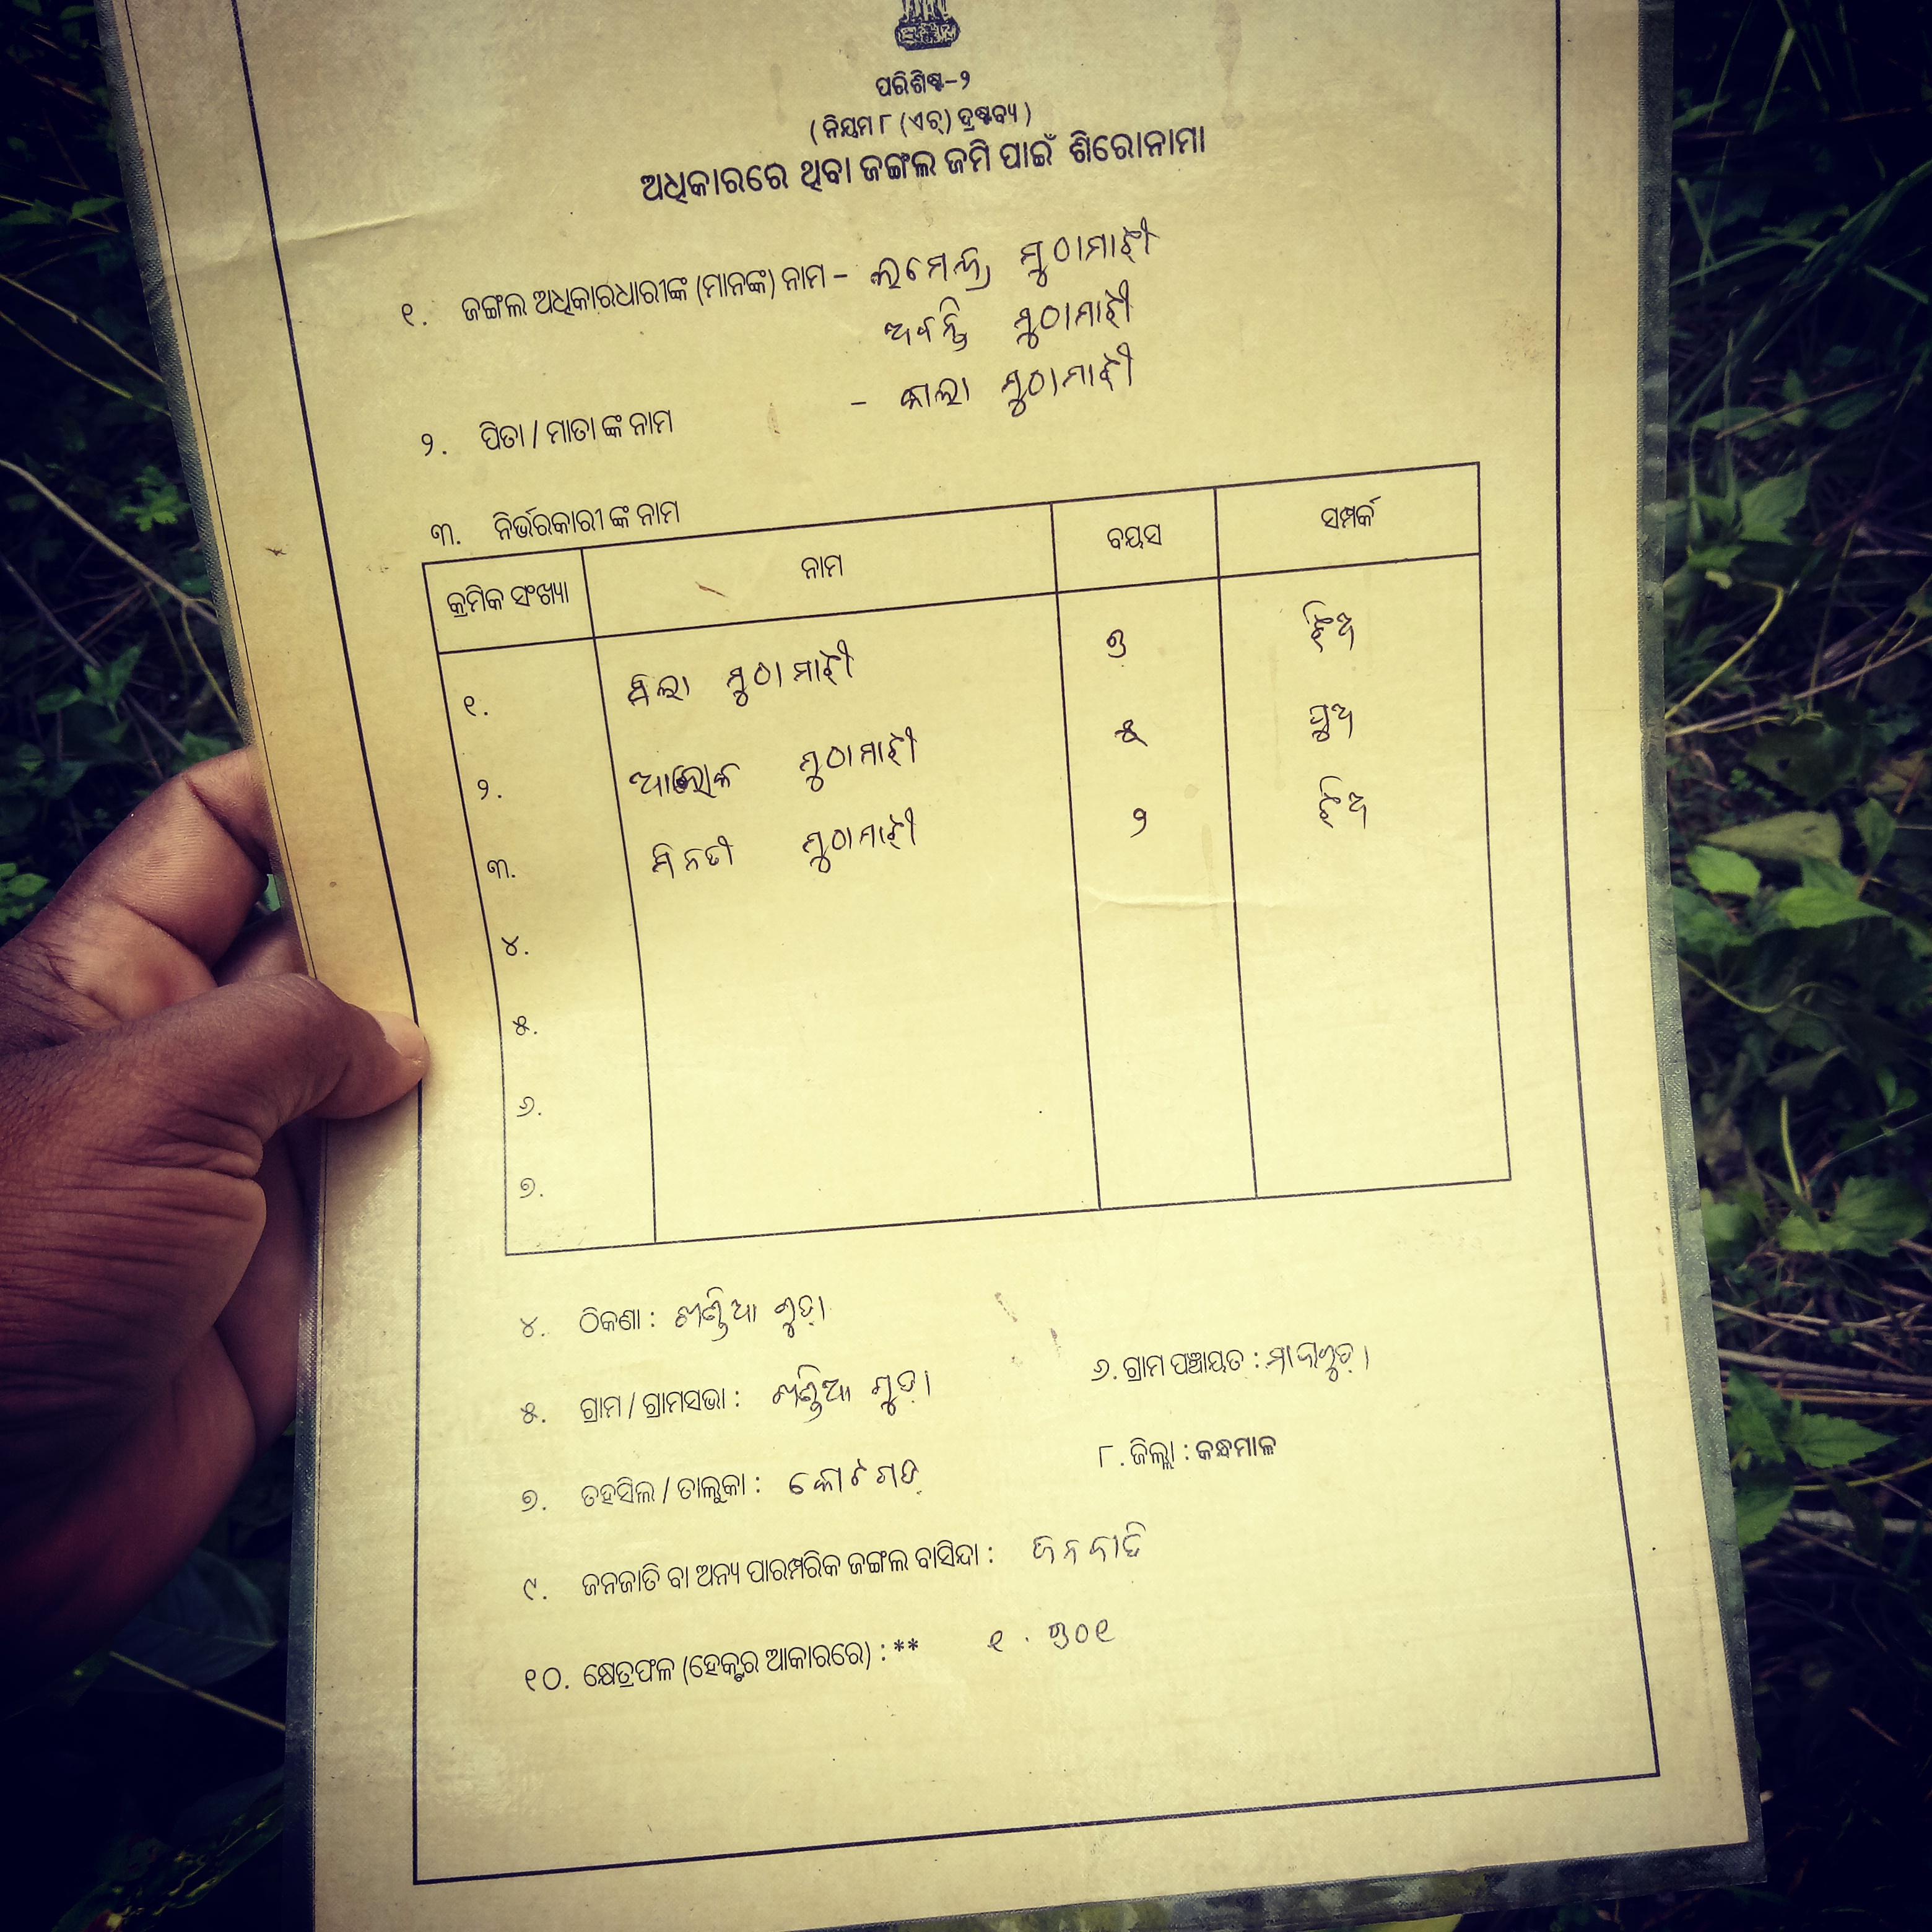 ପରିଶିଷ୍ଟ-୨
( ନିୟମ ୮ (ଏଚ୍) ଦ୍ରଷ୍ଟବ୍ୟ )
ଅଧିକାରରେ ଥିବା ଜଙ୍ଗଲ ଜମି ପାଇଁ ଶିରୋନାମା
୧. ଜଙ୍ଗଲ ଅଧିକାରଧାରୀଙ୍କ (ମାନଙ୍କ) ନାମ – ଲମେନ୍ଦ୍ରି ମୁଠାମାଝୀ
ଅବନ୍ତି ମୁଠାମାଝୀ
୨. ପିତା / ମାତା ଙ୍କ ନାମ – କାଲା ମୁଠାମାଝୀ
୩. ନିର୍ଭରକାରୀ ଙ୍କ ନାମ
କ୍ରମିକ ସଂଖ୍ୟା ନାମ ବୟସ ସମ୍ପର୍କ
୧. ମିଲା ମୁଠାମାଝୀ ଝିଅ
୨. ଆଲୋକ ମୁଠାମାଝୀ ୫ ପୁଅ
୩. ମିନତୀ ମୁଠାମାଝୀ ୨ ଝିଅ
୪.
୫.
୬.
୭.
୪. ଠିକଣା : ଖଣ୍ଡିଆ ଗୁଡ଼ା
୫. ଗ୍ରାମ / ଗ୍ରାମସଭା : ଖଣ୍ଡିଆ ଗୁଡ଼ା ୬. ଗ୍ରାମ ପଞ୍ଚାୟତ :
୭. ତହସିଲ / ତାଲୁକା : କୋଟଗଡ଼ ୮. ଜିଲ୍ଲା : କନ୍ଧମାଳ
୯. ଜନଜାତି ବା ଅନ୍ୟ ପାରମ୍ପରିକ ଜଙ୍ଗଲ ବାସିନ୍ଦା : ଜନଜାତି
୧୦. କ୍ଷେତ୍ରଫଳ (ହେକ୍ଟର ଆକାରରେ) : **